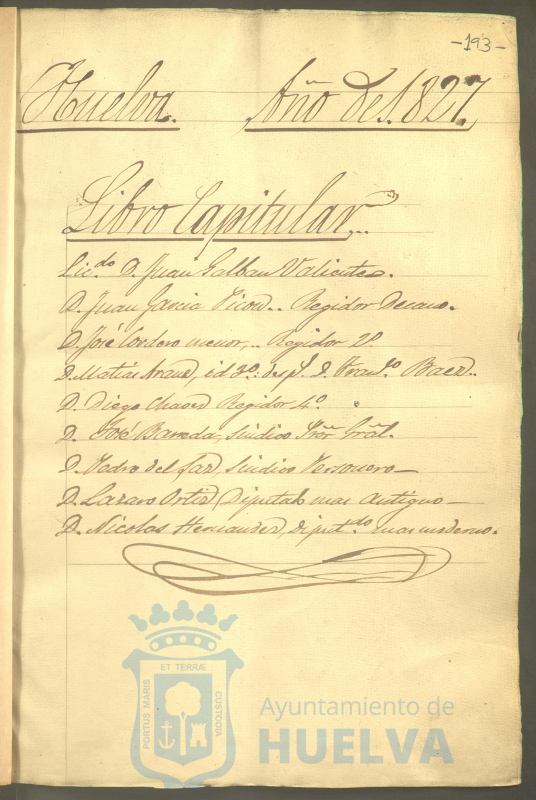 -193-
Huelva. Año de 1827.
Libro Capitular,..
Lic.do D. Juan Galban Valiente.
D. Juan Garcia Picon.. Regidor Decano.
D. José Cordero menor,.. Regidor 2º
D. Matias id 3º: D. Fran.co Baez..
D. Diego Chaves Regidor 4º
D. José Barreda, Sindico Pror Gral.
D. Pedro del Sindico Personero
D. Lazaro Ortiz Diputado mas antiguo
D. Nicolas Hernandez, diput.do mas moderno.
PORTUS MARIS ET TERRÆ CUSTODIA
Ayuntamiento de
HUELVA